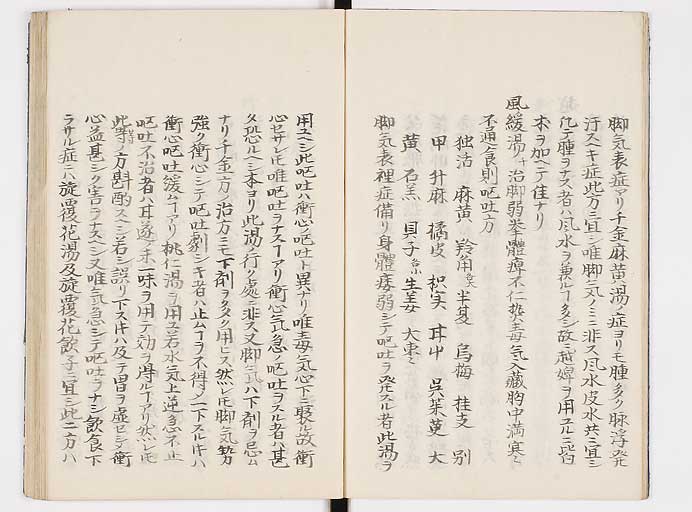 脚気表症アリ千金麻黄湯ノ症ヨリモ腫多ク脉浮発
汗スヘキ症此方ニ宜シ唯脚気ノミニ非ス風水皮水共ニ宜シ
凡テ腫ヲナス者ハ風水ヲ兼ルヿ多シ故ニ越婢ヲ用ユルニ皆
朮ヲ加ヘテ佳ナリ
風緩湯 治脚弱拳體痺不仁熱毒気入藏胸中満塞
不通食則呕吐方
独活 麻黄 羚角 半夏 烏梅 桂支 別
甲 升麻 橘皮 枳実 甘中 呉茱萸 大
黄 石羔 貝子 生姜 大棗
脚気表裡症備リ身體痿弱シテ呕吐ヲ発スル者此湯ヲ
用ユヘシ此呕吐ハ衝心ノ呕吐ト異ナリ唯毒気心下ニ聚ル故衝
心セサレ𪜈唯呕吐ヲナスヿアリ衝心気急ノ呕吐ヲスル者ハ甚
タ恐ルヘシ本ヨリ此湯ノ行ク處ニ非ス又脚気ハ下剤ヲ忌ム
ナリ千金方ノ治方ニモ下剤ヲタク用ヒス然レ𪜈脚気勢力
強ク衝心シテ呕吐劇シキ者ハ止ムヿヲ不得〆下スルヿハ
衝心呕吐緩ムヿアリ桃仁湯ヲ用ユ若水気上逆急不止
呕吐不治者ハ甘遂ノ末一味ヲ用テ効ヲ得ルヿアリ然レ𪜈
此等ノ方斟酌スヘシ若シ誤リ下スハ反テ胃ヲ虚セシテ衝
心益甚シク害ヲナスヘシ又唯気急シテ呕吐ヲナシ飲食下
ラサル症ニハ旋覆花湯及旋覆花飲子ニ宜シ此二方ハ